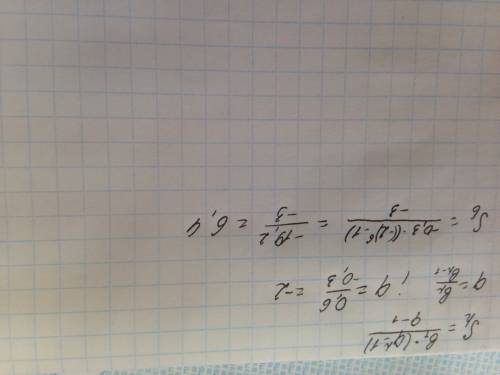 Sₙ = b₁·(qⁿ-1) / q-1
q = bₙ / bₙ₋₁ ; q = 0,6 / -0,3 = -2
S₆ = -0,3·((-2)⁶-1) / -3 = -19,2 / -3 = 6,4